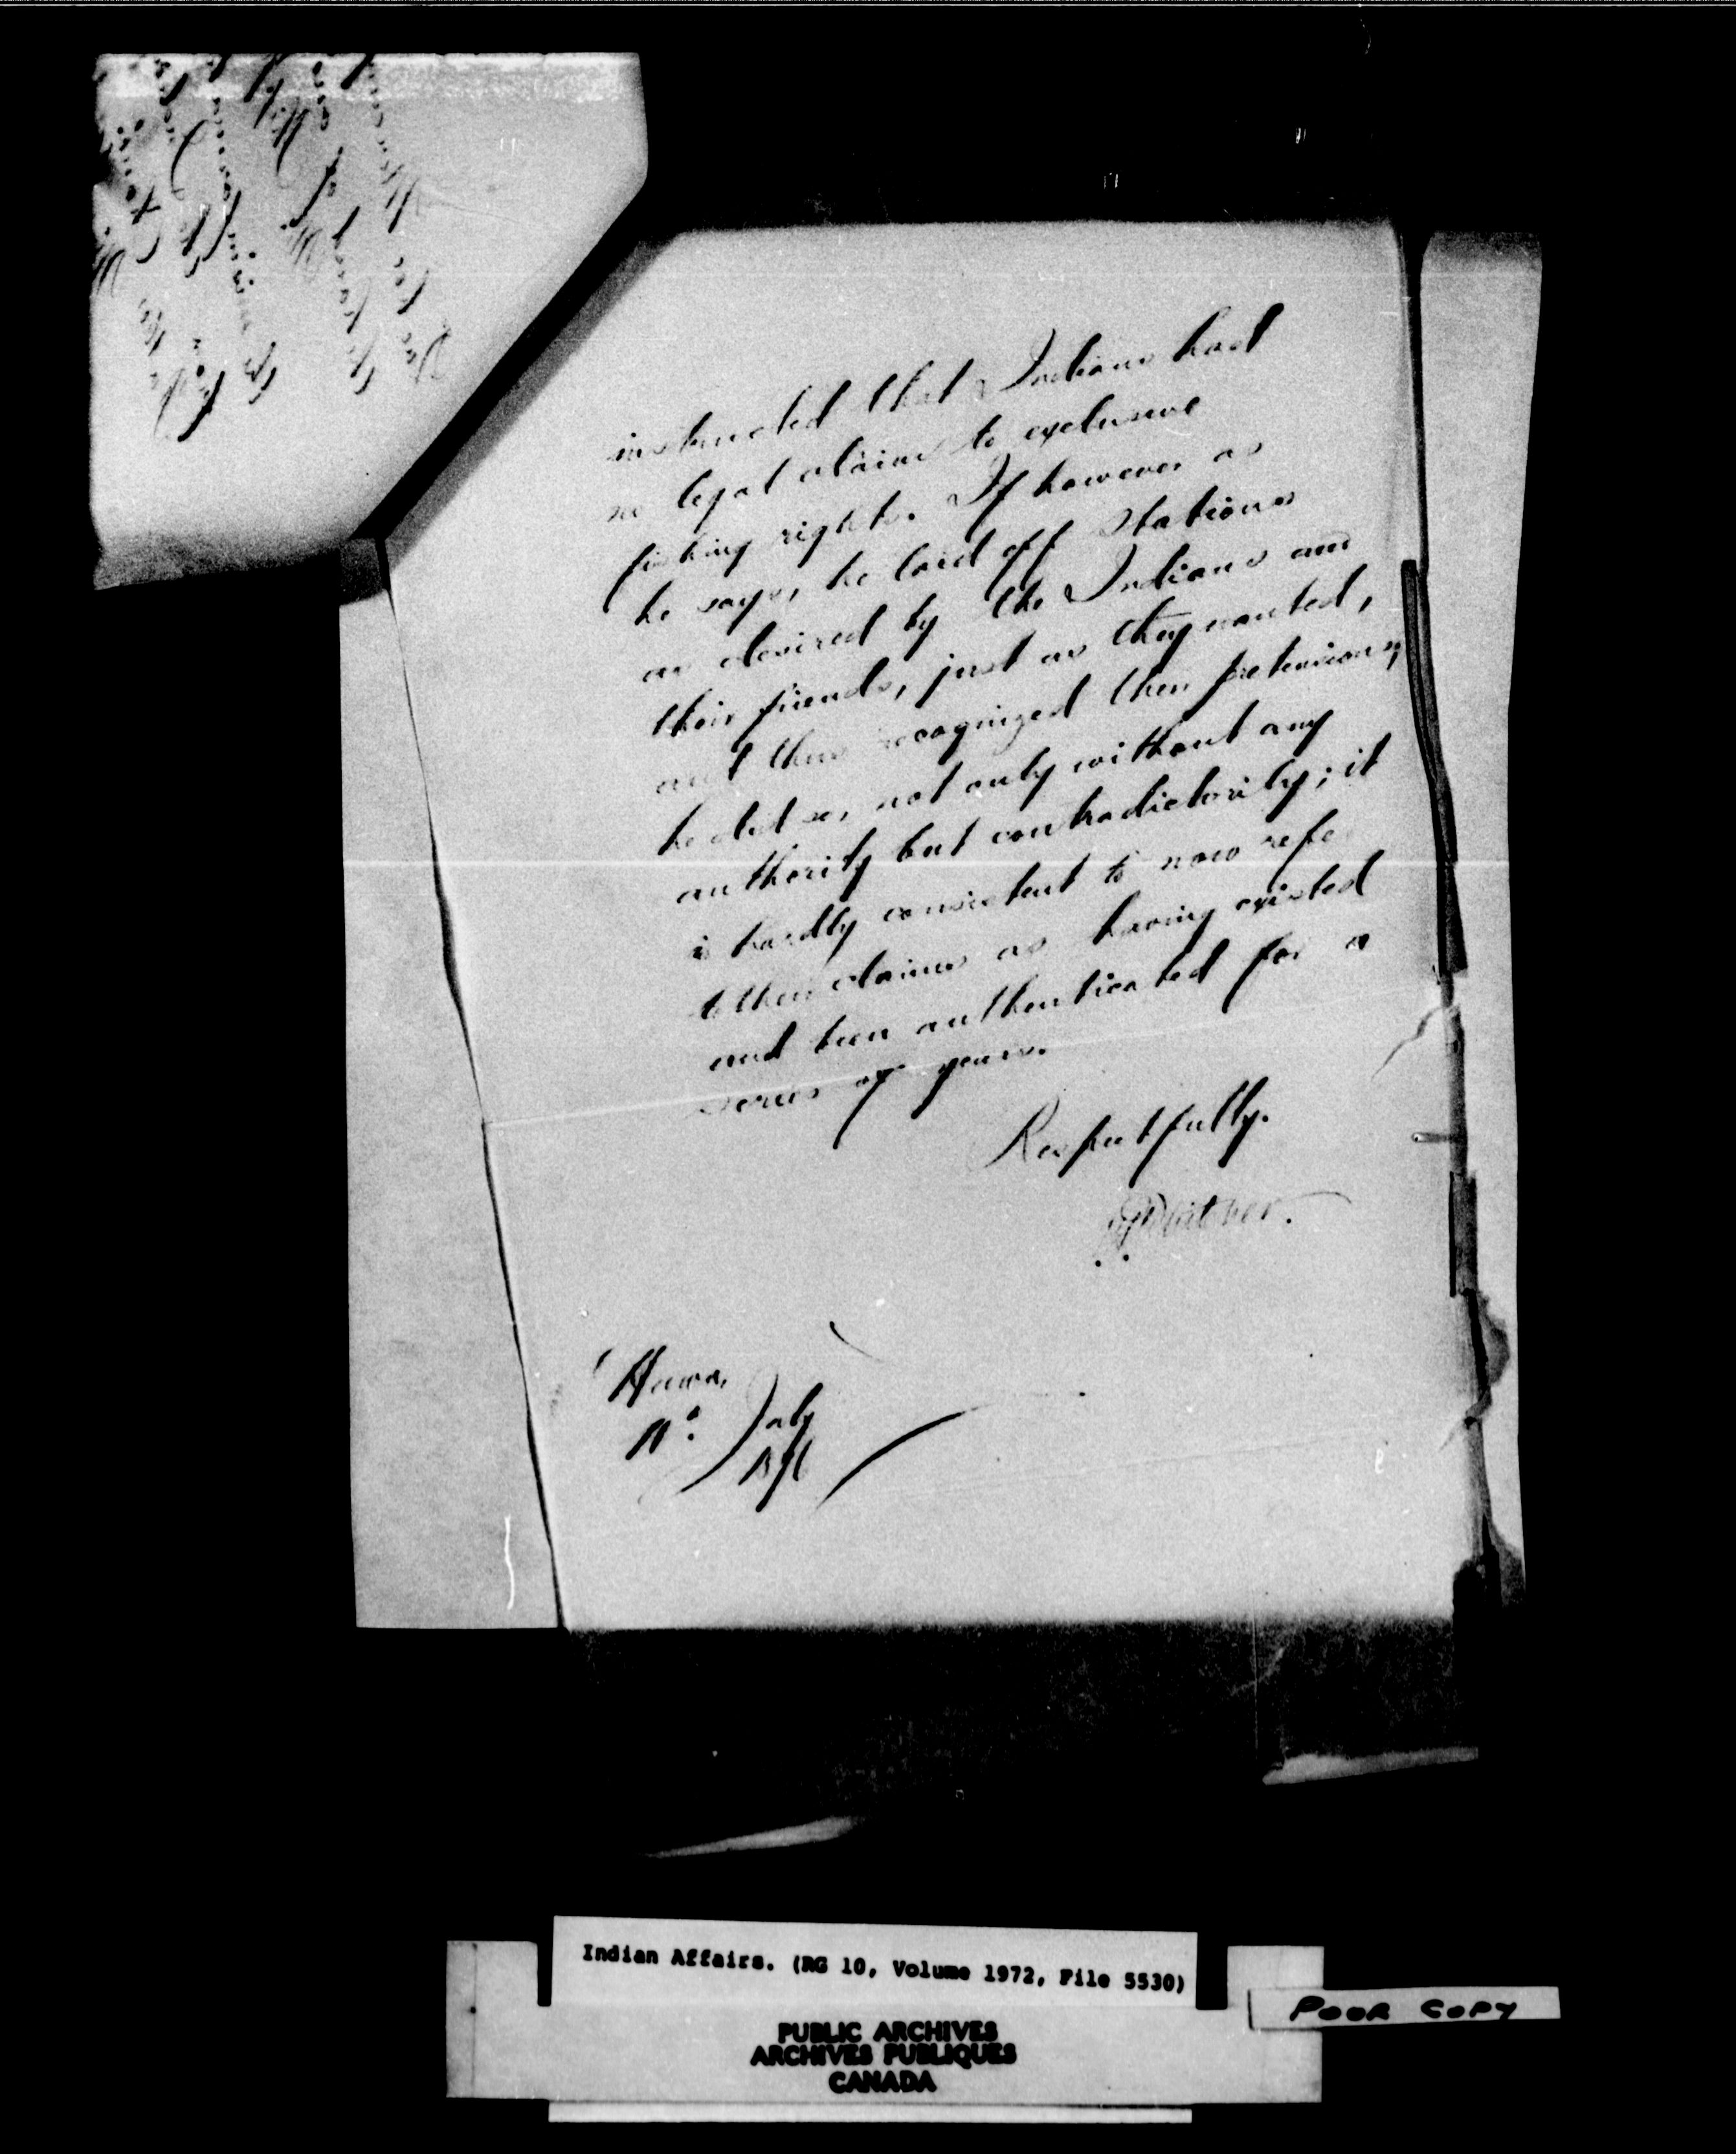 instructed that Indians had
no legal claim to exclusive
fishing rights. If however as
he says, he laid off Stations
as desired by the Indians and
their friends, just as they wanted,
and thus recognized their pretensions,
he did so, not only without any
authority but contradictorily; it
is hardly consistent to now refe
to their claims as having existed
and been authenticated for a
series of years.
Respectfully.
Whitcher.
Ottawa,
July
Indian Affairs. (RG 10, Volume 1972, File 5530)
PUBLIC ARCHIVES
ARCHIVES PUBLIQUES
CANADA
POOR COPY